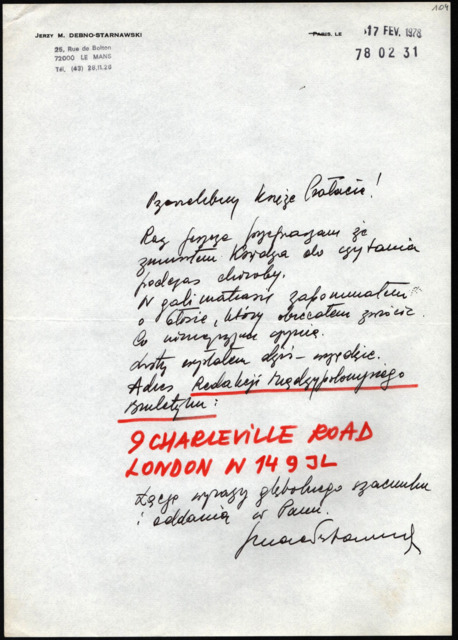 104
JERZY M. DEBNO-STARNAWSKI
PARIS, LE
17 FEV. 1978
25, Rue de Bolton
72000 LE MANS
Tél. (43) 28.11.26
78 02 31
Przewielebny Księże Prałacie!
Raz jeszcze przepraszam że
zmusiłem Księdza do czytania
podczas choroby.
W galimatiasie zapomniałem
o Głosie, który obiecałem zwrócić.
Co niniejszym czynię.
Listy wysłałem dziś - wszędzie.
Adres Redakcji Międzypolonijnego
Biuletynu:
9 CHARLEVILLE ROAD
LONDON W 14 9 JL
Łączę wyrazy głębokiego szacunku
i oddania w Panu.